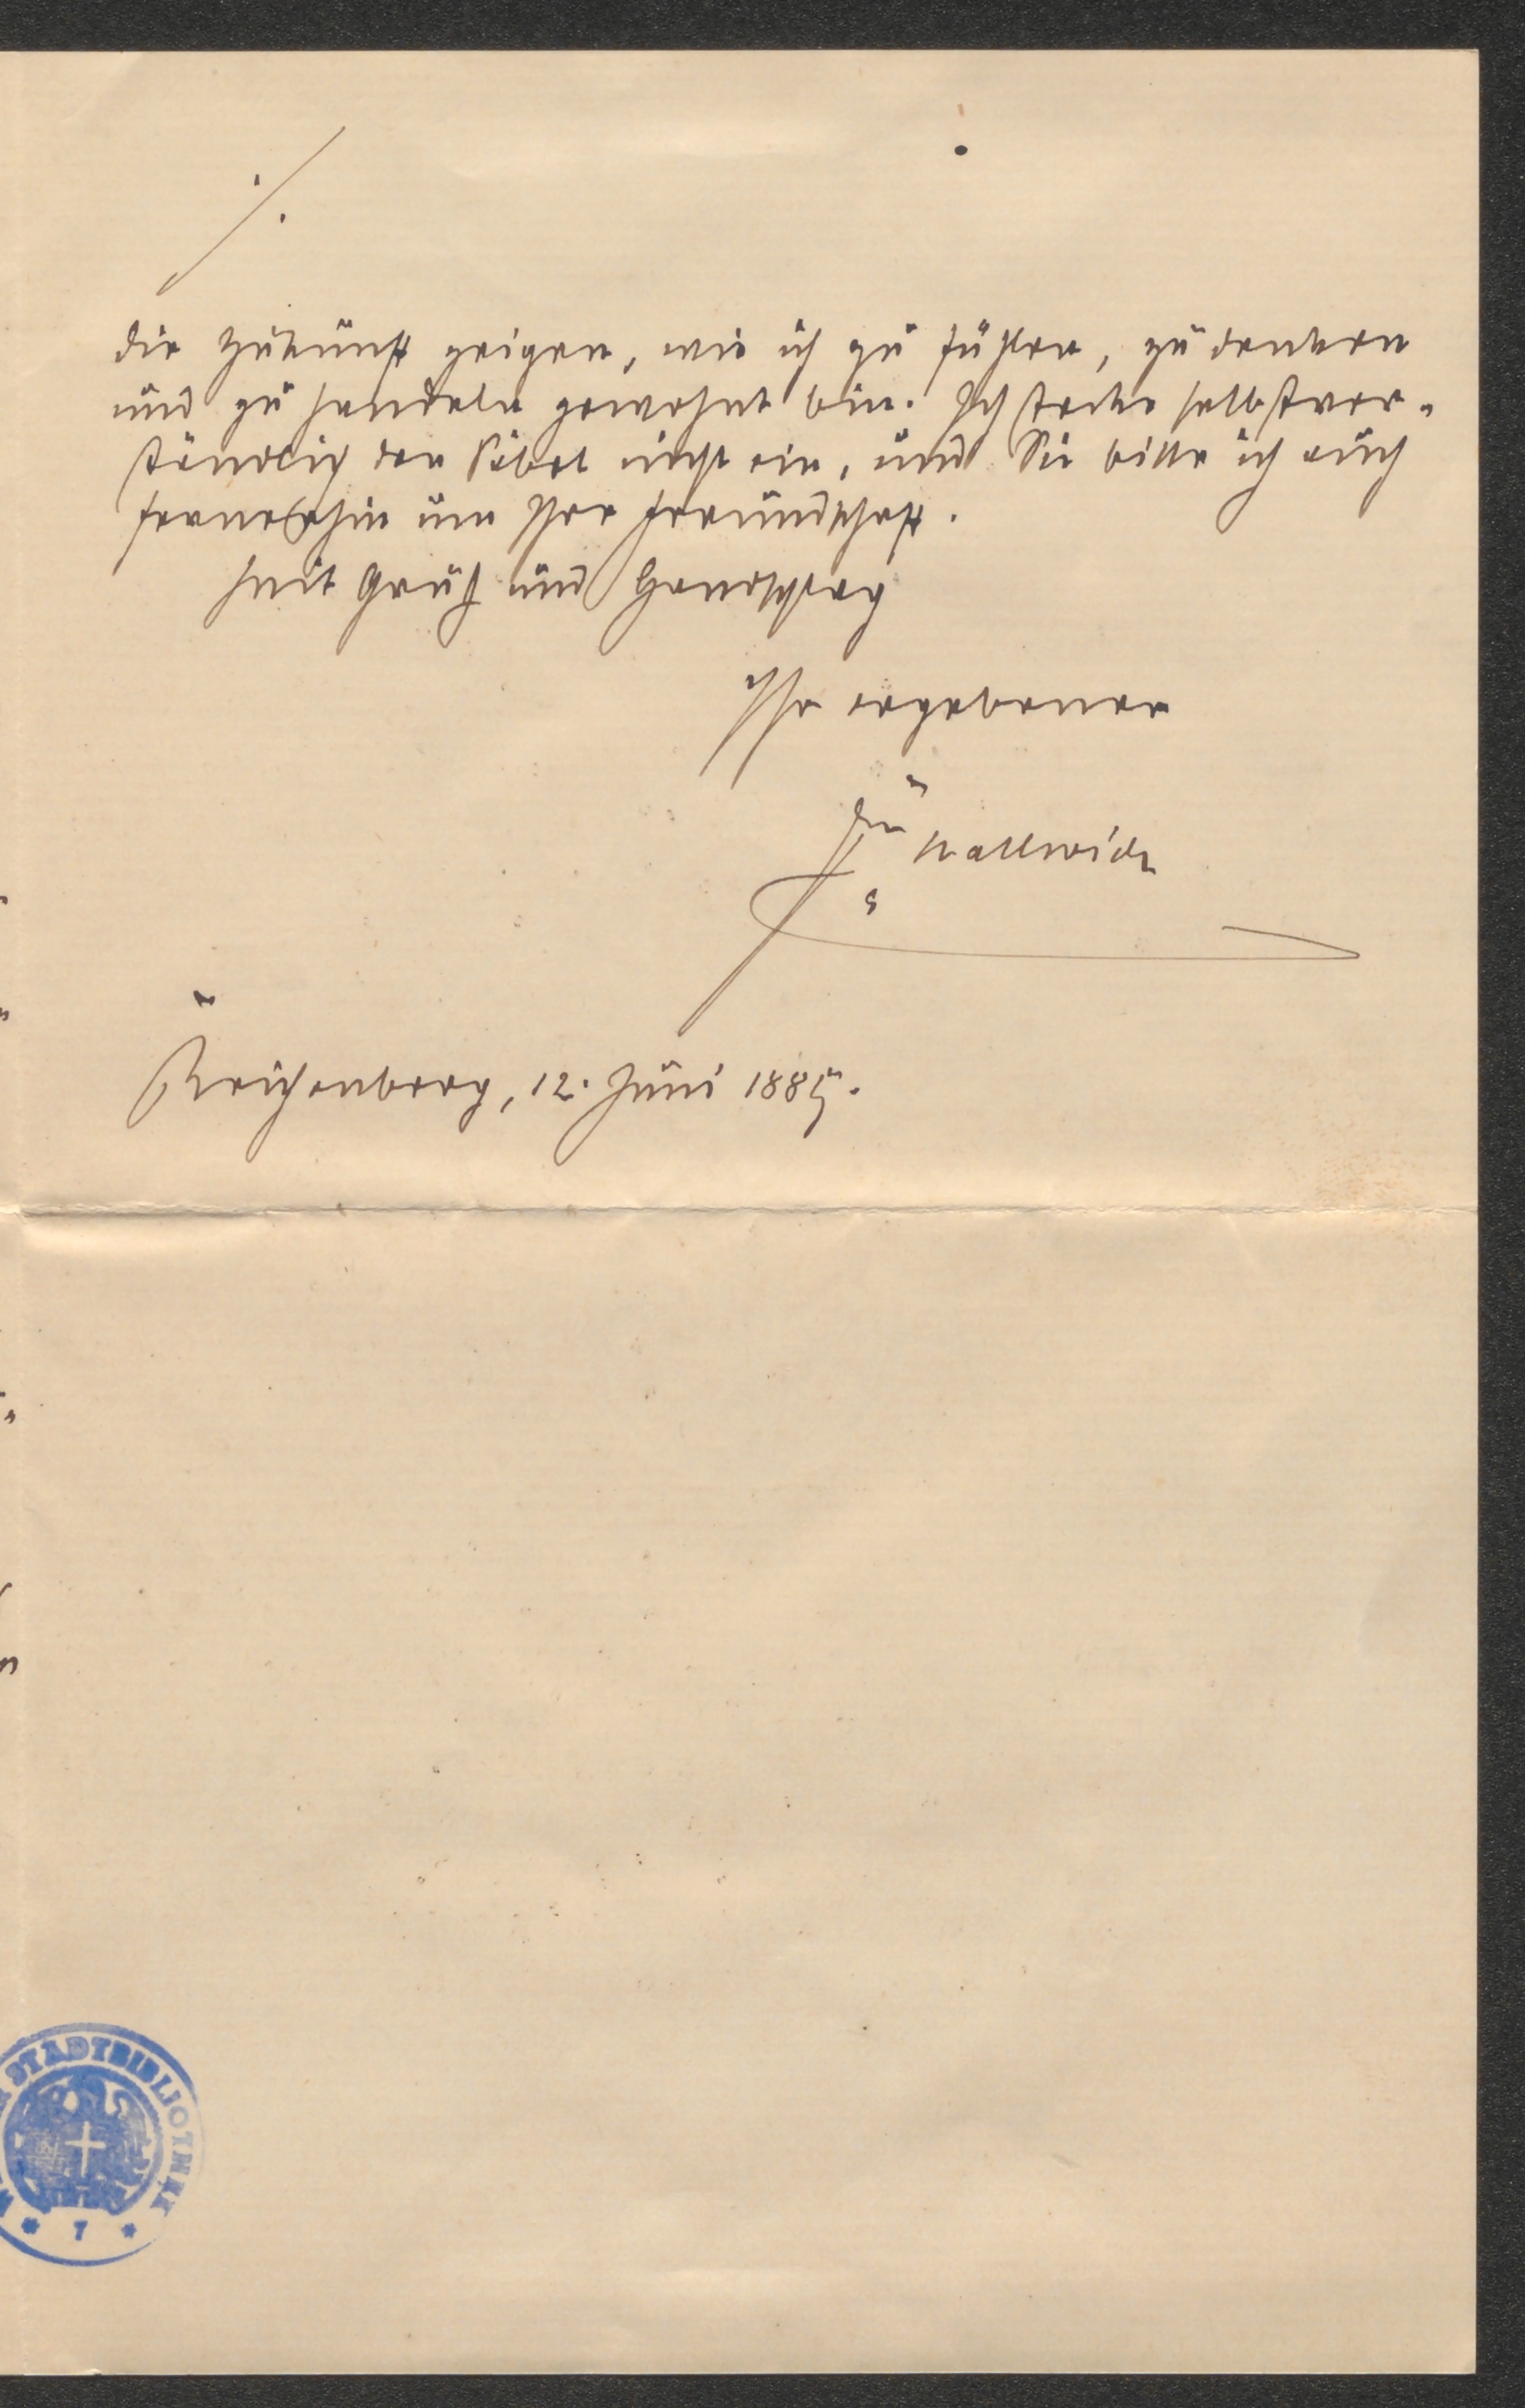 ./.
die Zukunft zeigen, wie ich zu fühlen, zu denken
und zu handeln gewohnt bin. Ich stecke selbstver-
ständlich den Säbel nicht ein, und Sie bitte ich auch
fernerhin um Ihre Freundschaft.
Mit Gruß und Handschlag
Ihr ergebener
Hallwich
Reichenberg, 12. Juni 1885.
STADTBIBLIOTHEK
* 7 *